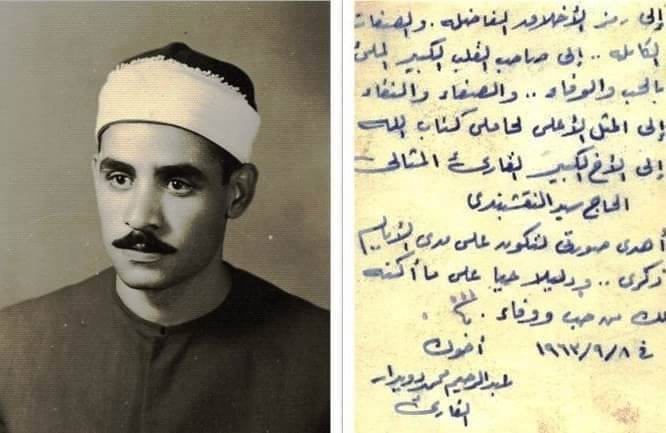 إلى رمز الأخلاق الفاضله . والصفات
الكامله .. إلى صاحب القلب الكبير الملئ
بالحب والوفاء .. والصفاء والنقاء
إلى المثل الأعلى لحاملى كتاب الله
إلى الأخ الكبير القارئ المثالى
الحاج سيد النقشبندى
أهدى صورتى لتكون على مدى الأيام
ذكرى .. ودليلا حيا على ما أكنه
لك من حب ووفاء .
أخوك
فى ١٩٦٣/٩/٨
عبد الرحيم محمد دويدار
القارئ